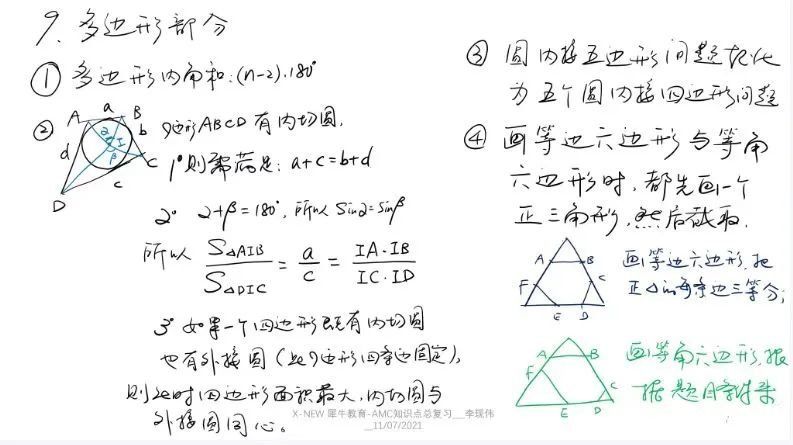 9、多边形部分
① 多边形内角和:(n-2)·180°
②
A a B
b
C
c
D
d
α I
β
四边形ABCD有内切圆.
1° 则需满足: a+c=b+d
2° α+β=180°, 所以 Sinα=Sinβ
所以 S△AIB / S△DIC = a / c = IA·IB / IC·ID
3° 如果一个四边形既有内切圆
也有外接圆(此四边形四条边固定),
则此时四边形面积最大,内切圆与
外接圆同心。
③ 圆内接五边形问题转化
为五个圆内接四边形问题
④ 画等边六边形与等角
六边形时,都先画一个
正三角形,然后截取.
A B
C
D
E
F
画等边六边形,把
正△的每条边三等分;
A B
C
D
E
F
画等角六边形,根
据题目条件来
X-NEW 犀牛教育-AMC知识点总复习__李现伟
__11/07/2021